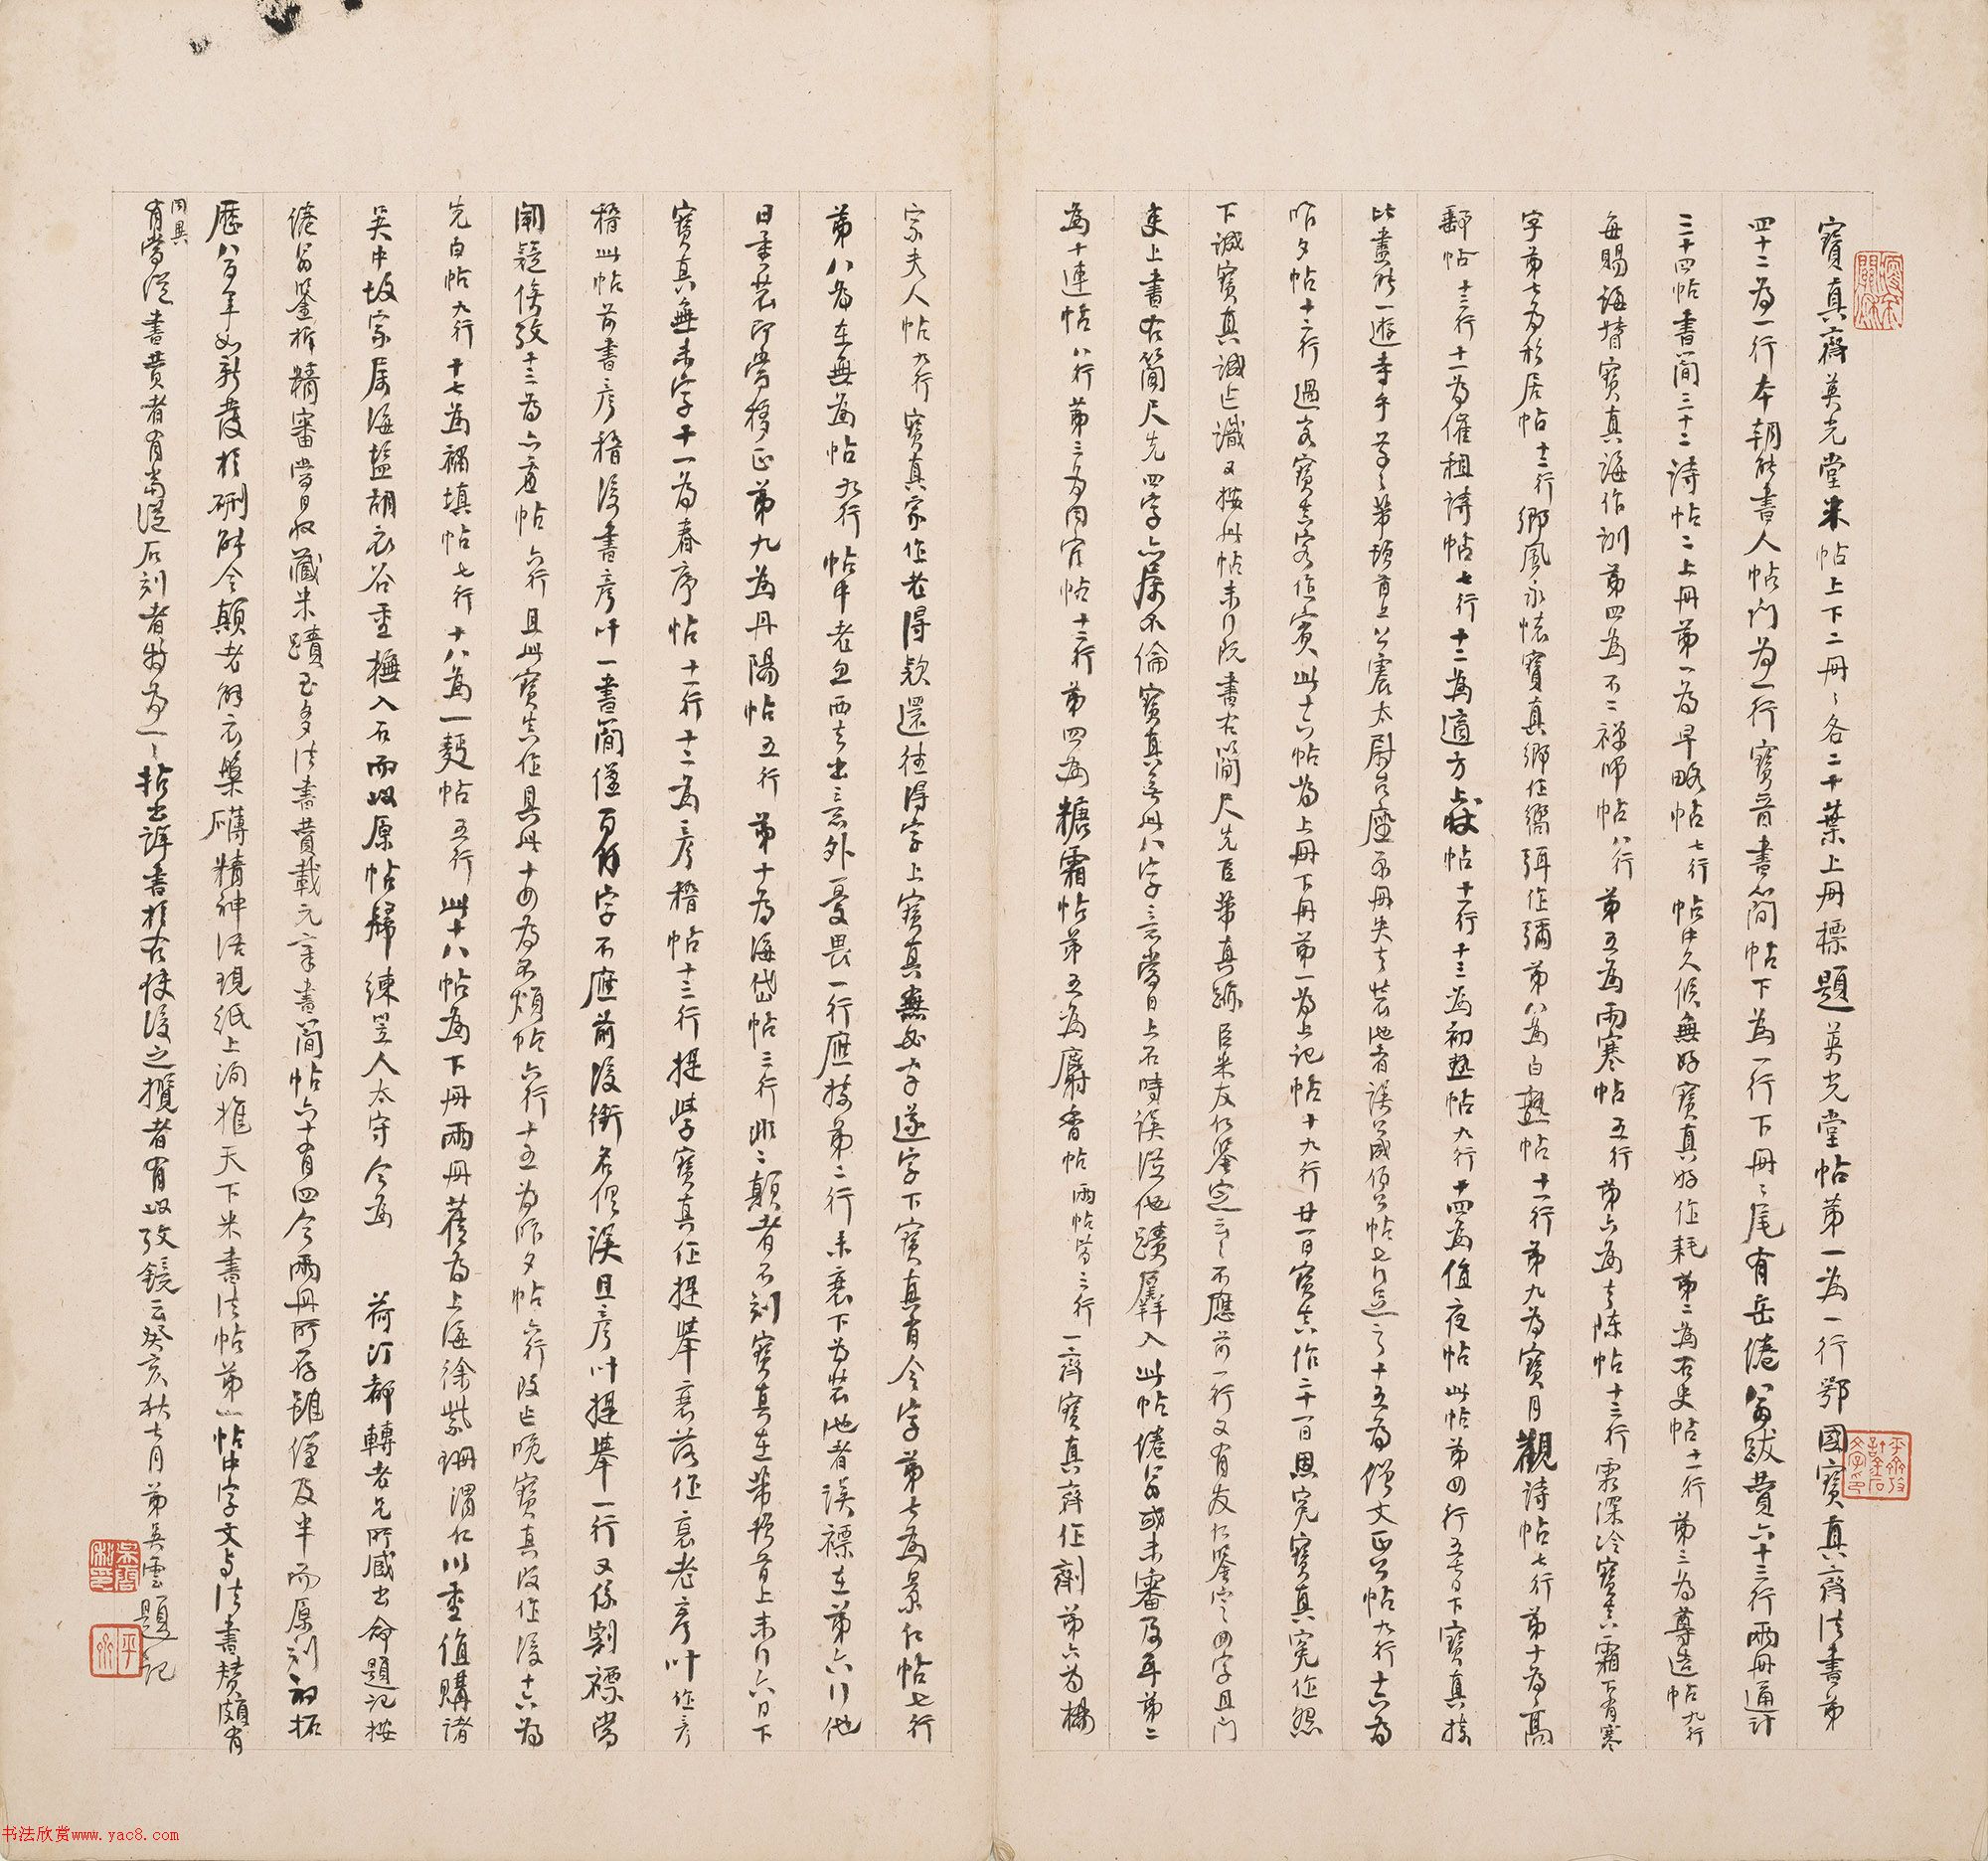 寶真齋英光堂米帖上下二冊〻各二十葉上冊標題英光堂帖第一為一行鄂國寶真齋法書第
四十二為一行本朝能書人帖門為一行寶晉書簡帖下為一行下冊〻尾有岳倦翁跋贊六十三行兩冊通計
三十四帖書簡三十二詩帖二上冊第一為早略帖七行帖中久候無好寶真好作耗第二為右史帖十一行第三為尊造帖九行
每賜誨督寶真誨作訓第四為不二禪師帖八行第五為雨寒帖五行第六為去陳帖十三行霜深冷寶真霜下有寒
字第七為移居帖十二行鄉風永懷寶真鄉作嚮弭作彌第八為白熟帖十一行第九為寶月觀詩帖七行第十為高
郵帖十三行十一為催租詩帖七行十二為適方上狀帖十一行十三為初熱帖九行十四為值夜帖此帖第四行五日下寶真接
此盡能一遊寺乎芾〻等頓首上公震太尉台座原冊失去裝池者誤以咸伯公帖七行足之十五為僧文正公帖九行十六為
昨夕帖十六行過客寶真客作賓此十六帖為上冊下冊第一為上記帖十九行廿一日寶真作二十一日恩宛寶真宛作怨
下誠寶真誠作讖又按此帖末行既書右簡尺先臣芾真跡臣米友仁鑒定云〻不應前一行又有友仁鑒定四字且門
來上書右簡尺先四字亦屬不倫寶真無此八字意當日上石時誤從他蹟羼入此帖倦翁或未審及耳第二
為十連帖八行第三為同官帖十二行第四為糖霜帖第五為麝香帖兩帖皆三行一齊寶真齊作劑第六為楊
宗夫人帖九行寶真家作老得欵還往得字上寶真無必字遂字下寶真有令字第七為景仁帖七行
第八為在無為帖九行帖中老忽西去出意外憂畏一行應接第二行末衰下為裝池者誤褾在第六行他
日重裝即當移正第九為丹陽帖五行第十為海岱帖三行非〻顛者不刻寶真在芾頓首上末行六日下
寶真無末字十一為春序帖十一行十二為彥稽帖十三行提學寶真作提舉衰落作衰老彥叶作彥
稽此帖前書彥稽後書彥叶一書簡僅百餘字不應前後銜名俱誤且彥叶提舉一行又係割褾當
闕疑俟攷十三為六壺帖六行且此寶真作具此十四為不煩帖六行十五為昨夕帖六行改作晚寶真改作後十六為
先白帖九行十七為補填帖七行十八為一麪帖五行此十八帖為下冊兩冊舊為上海徐紫珊渭仁以重值購諸
吳中故家屬海鹽胡衣谷重橅入石而以原帖歸練笠人太守今為　荷汀都轉老兄所藏出命題記按
倦翁鑒析精審當日收藏米蹟至多法書贊載元章書簡帖六十有四今兩冊所存雖僅及半而原刻初拓
歷八百年如新發於硎能令顛老解衣槃礴精神活現紙上洵推天下米書法帖第一帖中字文与法書贊頗有
同異
有當從書贊者有當從石刻者特為一〻拈出詳書於右俾後之攬者有以攷鏡云癸亥秋七月弟吳雲題記
書法欣赏www.yac8.com